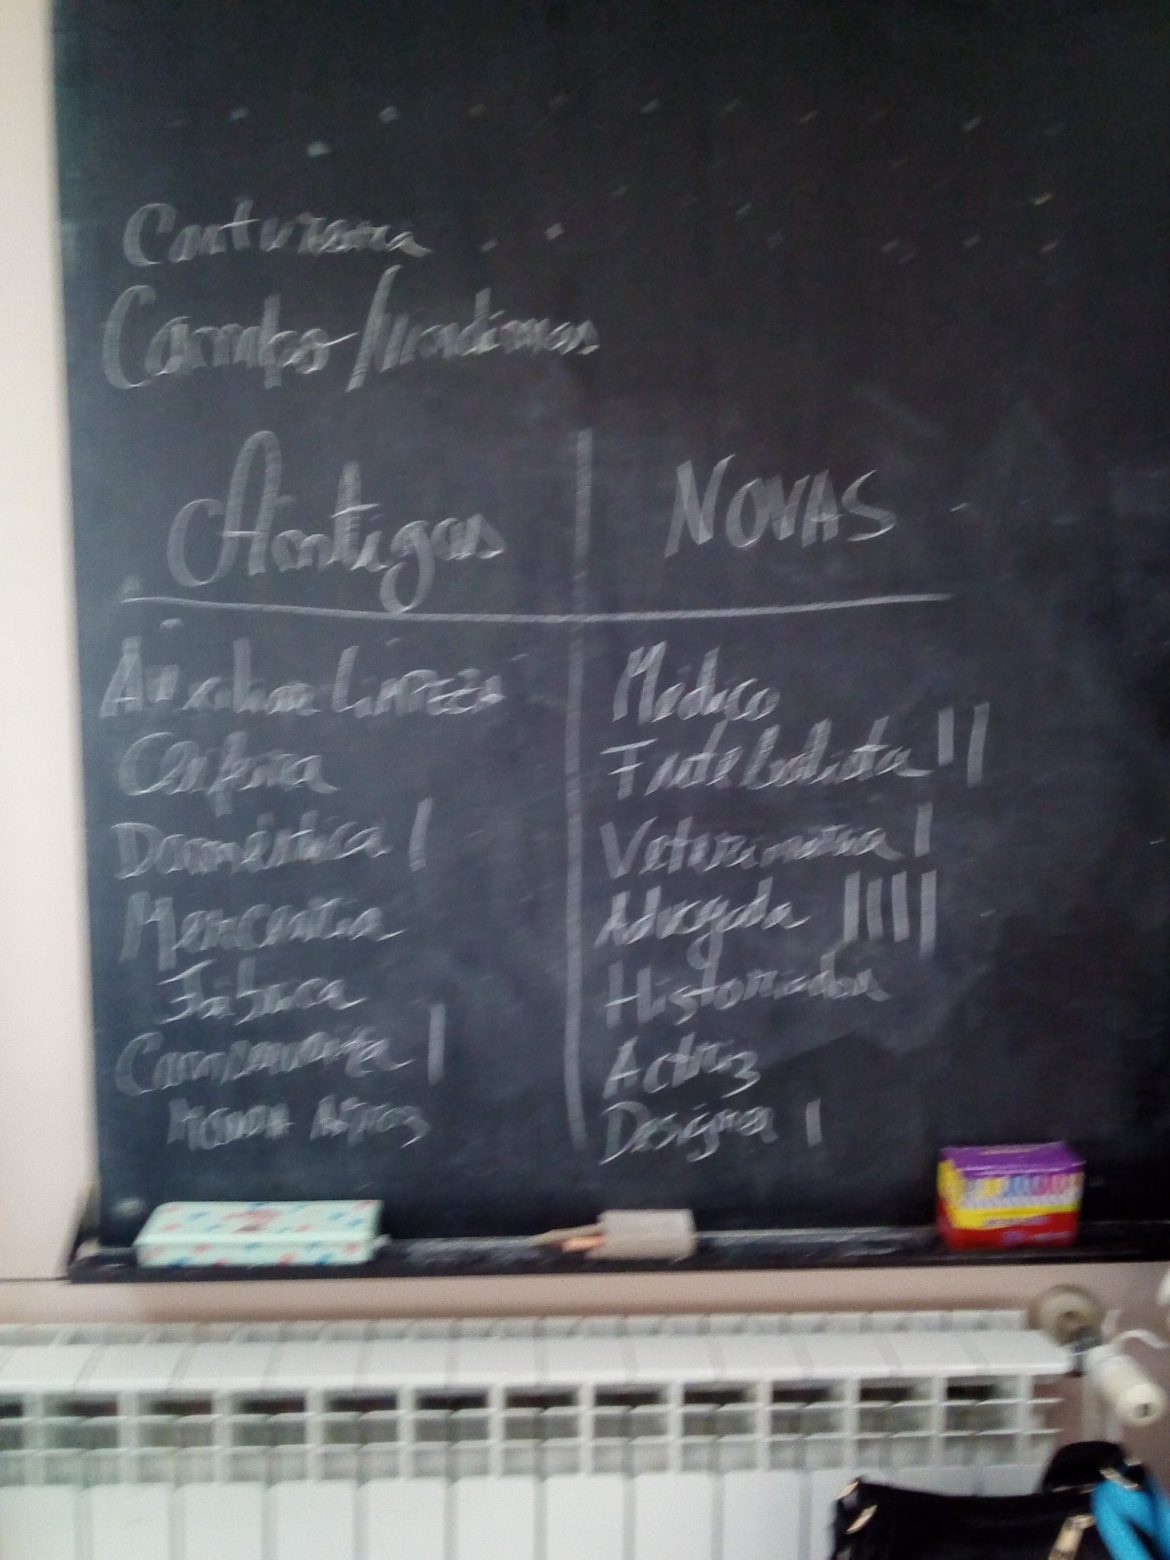 Costureira
Campo/
Antigas
NOVAS
Auxiliar Limpeza
Médico
Ceifeira
Futebolista II
Doméstica I
Veterinária I
Mercearia
Advogada IIII
Fábrica
Historiador
Actriz
Designer I